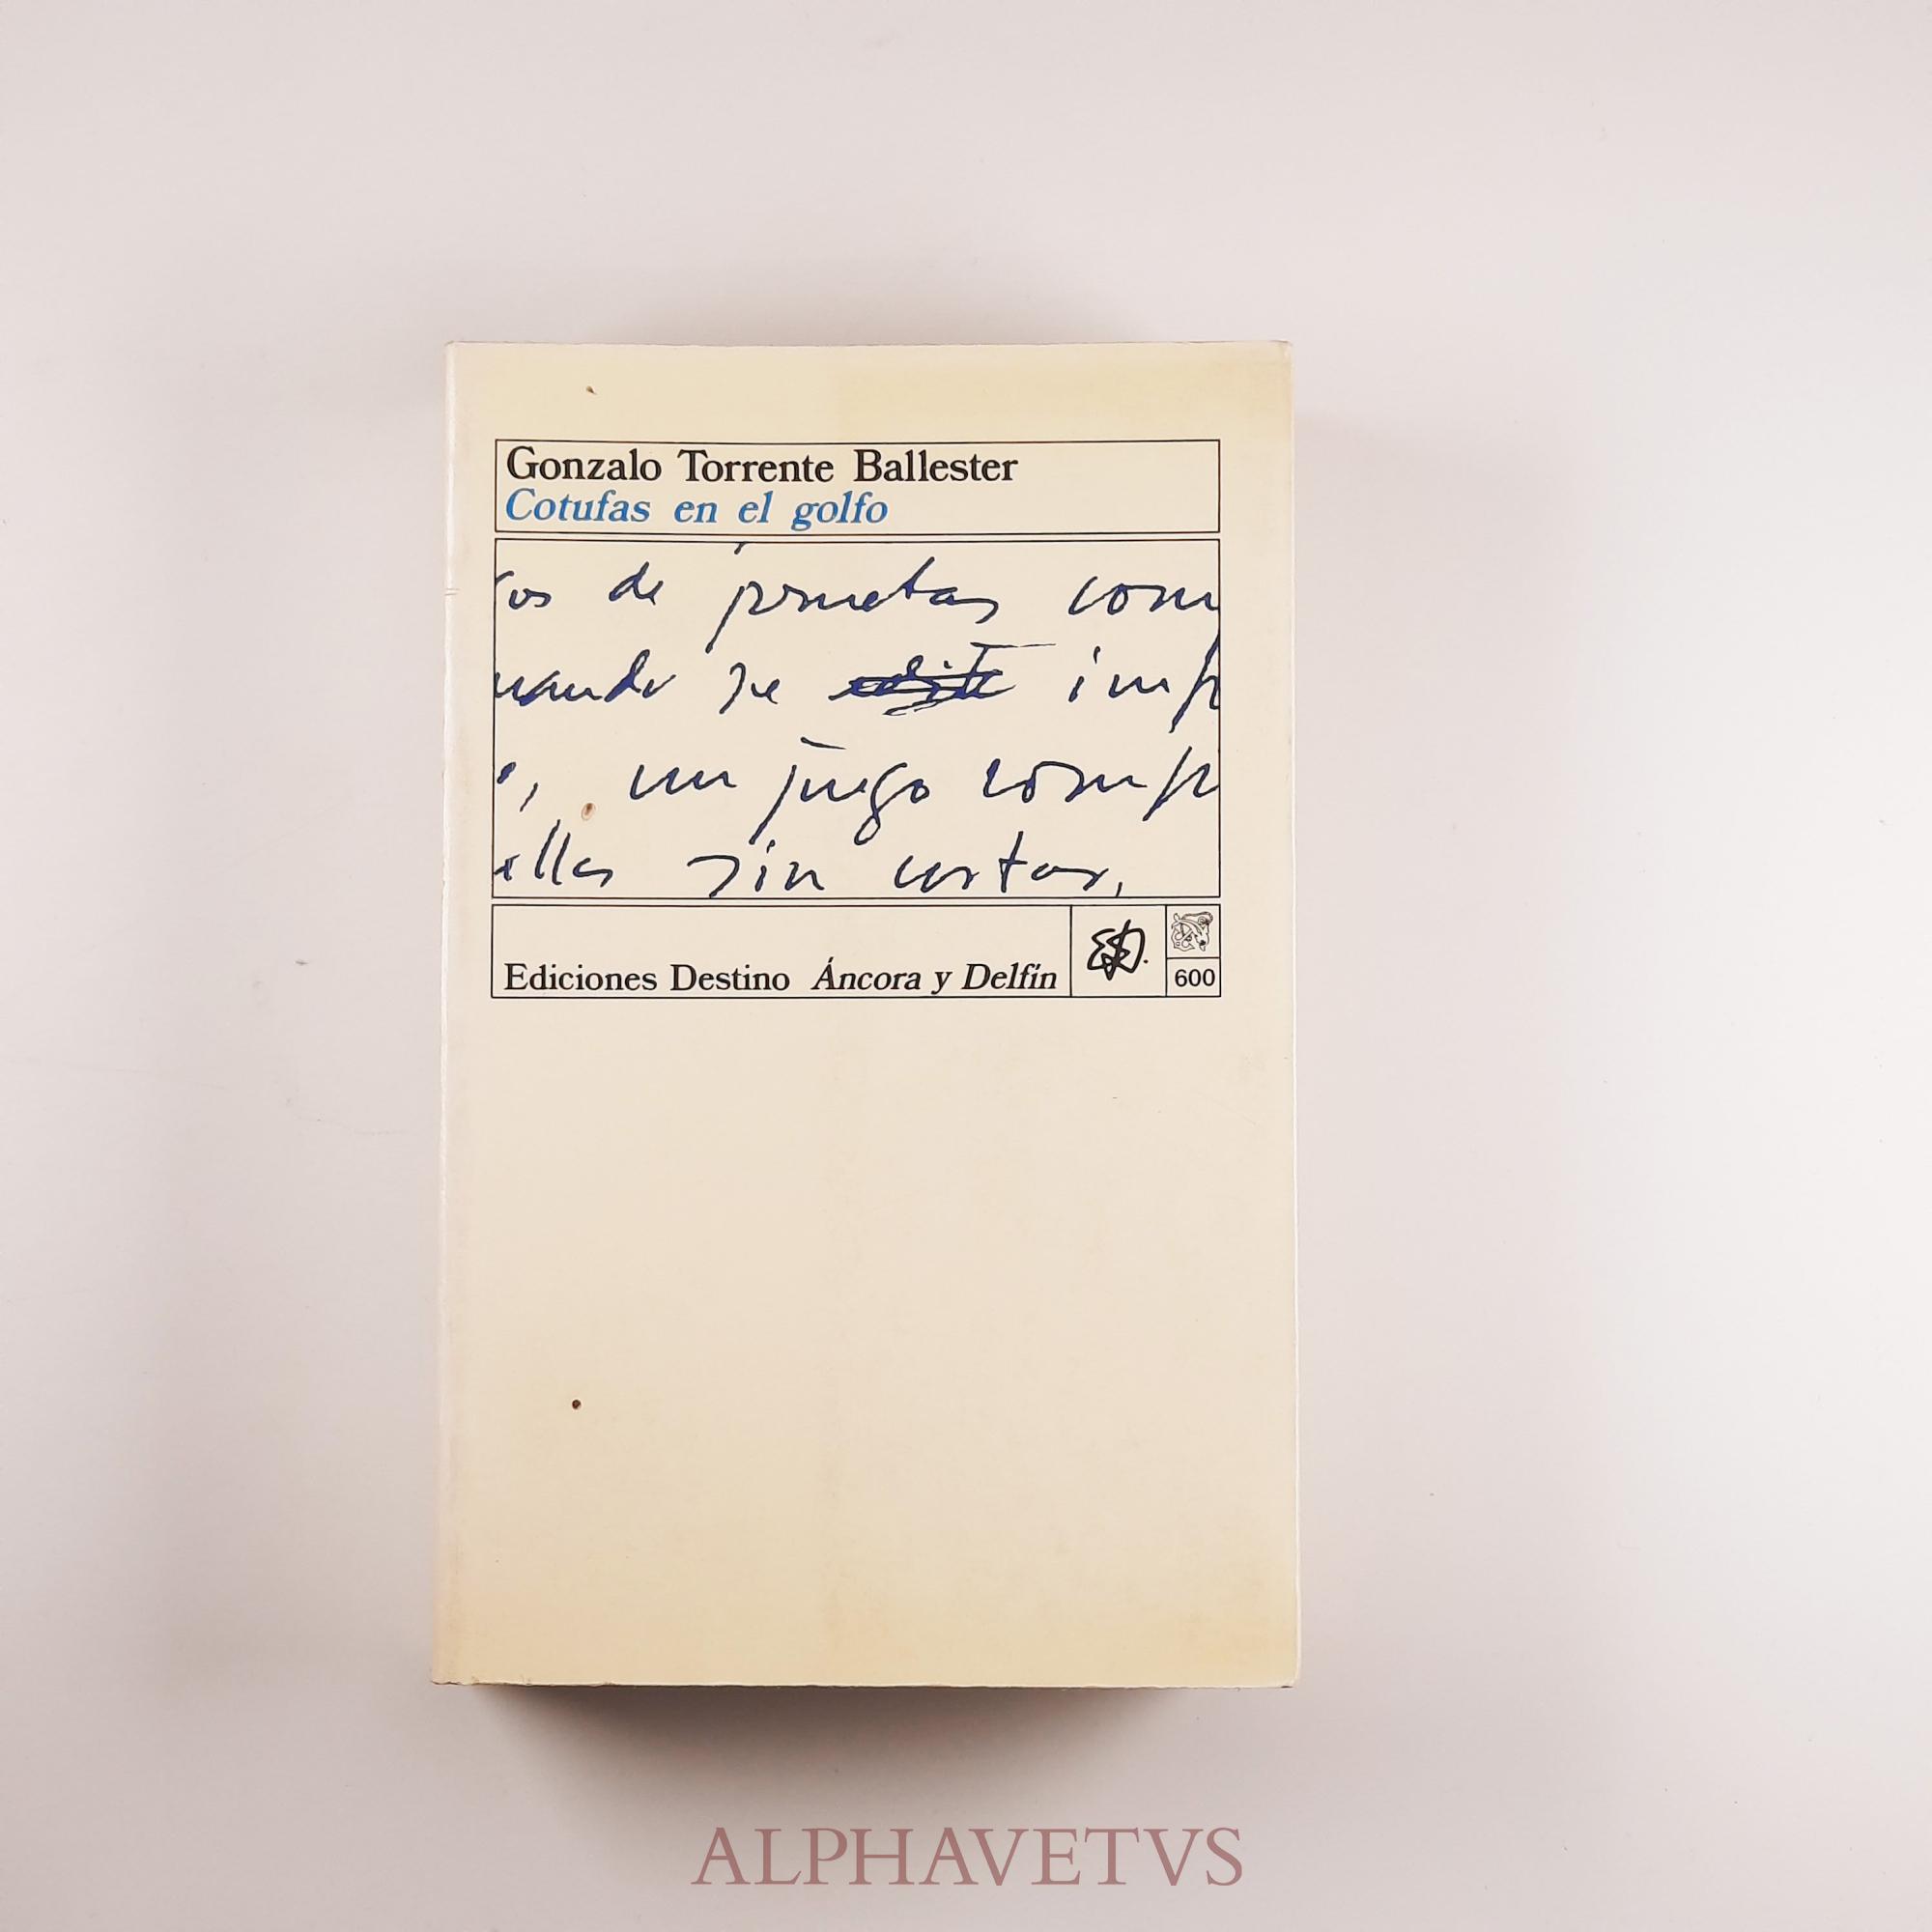 Gonzalo Torrente Ballester
Cotufas en el golfo
os de pruebas com
uando se imp
o, un juego comp
ellas sin cortar,
Ediciones Destino Áncora y Delfín
600
ALPHAVETVS